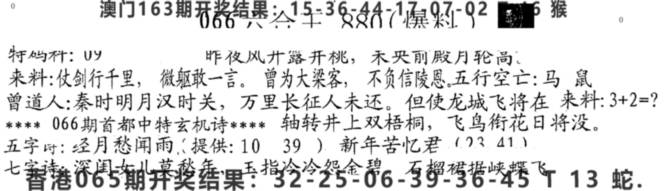 澳门163期开奖结果：15-36-44-17-07-02 猴
066六合王 880(爆料)
特码料：09 昨夜风开露井桃，未央前殿月轮高。
来料:仗剑行千里，微躯敢一言。曾为大梁客，不负信陵恩。五行空亡:马 鼠
曾道人:秦时明月汉时关，万里长征人未还。但使龙城飞将在 来料:3+2=?
**** 066期首都中特玄机诗**** 轴转井上双梧桐，飞鸟衔花日将没。
五字诗:经月愁闻雨(提供:10 39 ) 新年苦忆君(23 41)
七字诗:深闺女儿莫愁年，玉指泠泠怨金碧。石榴裙裾蛱蝶飞
香港065期开奖结果：32-25-06-39-36-45 T 13 蛇.